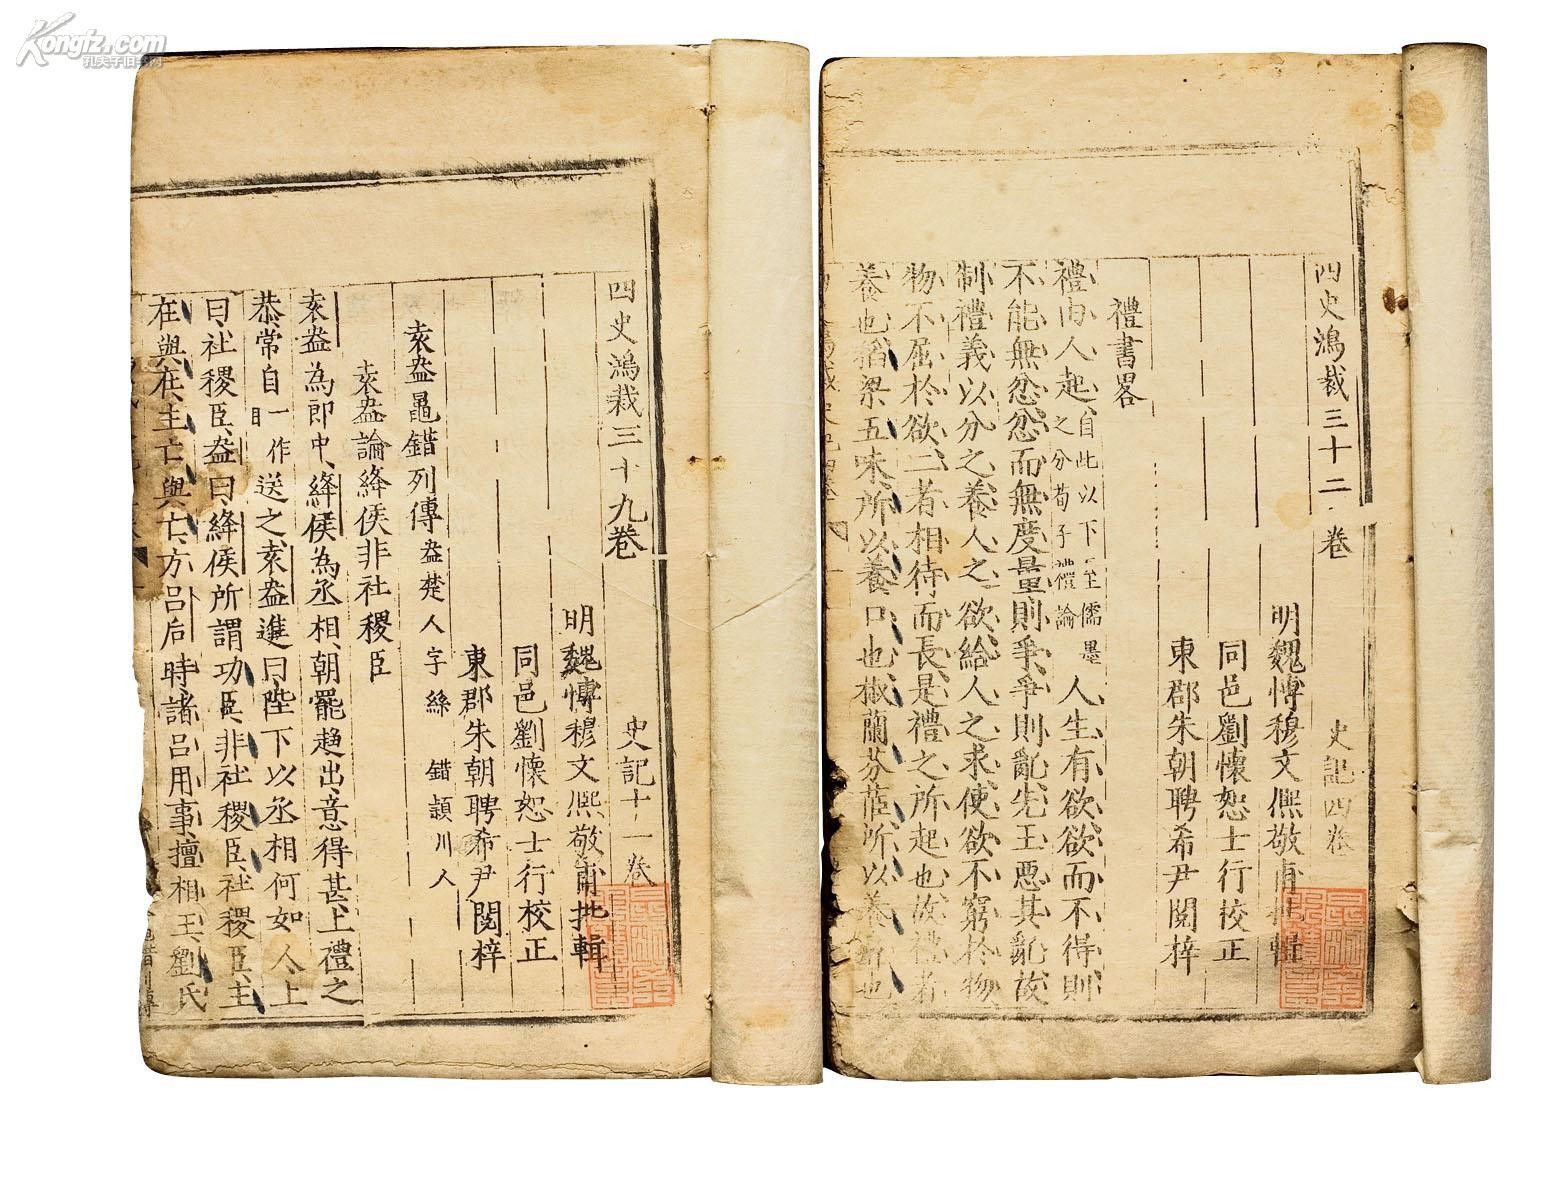 Kongfz.com
孔夫子旧书网
四史鴻裁三十二卷 史記四卷
明魏博穆文熙敬甫批輯
同邑劉懷恕士行校正
東郡朱朝聘希尹閱梓
禮書畧
禮由人起自此以下至儒墨之分荀子禮論人生有欲欲而不得則
不能無忿忿而無度量則爭爭則亂先王惡其亂故
制禮義以分之養人之欲給人之求使欲不窮於物
物不屈於欲二者相待而長是禮之所起也故禮者
養也稻粱五味所以養口也椒蘭芬茝所以養鼻也
四史鴻裁三十九卷 史記十一卷
明魏博穆文熙敬甫批輯
同邑劉懷恕士行校正
東郡朱朝聘希尹閱梓
袁盎鼂錯列傳盎楚人字絲 錯潁川人
袁盎論絳侯非社稷臣
袁盎為郎中絳侯為丞相朝罷趨出意得甚上禮之
恭常自一作目送之袁盎進曰陛下以丞相何如人上
曰社稷臣盎曰絳侯所謂功臣非社稷臣社稷臣主
在與在主亡與亡方呂后時諸呂用事擅相王劉氏